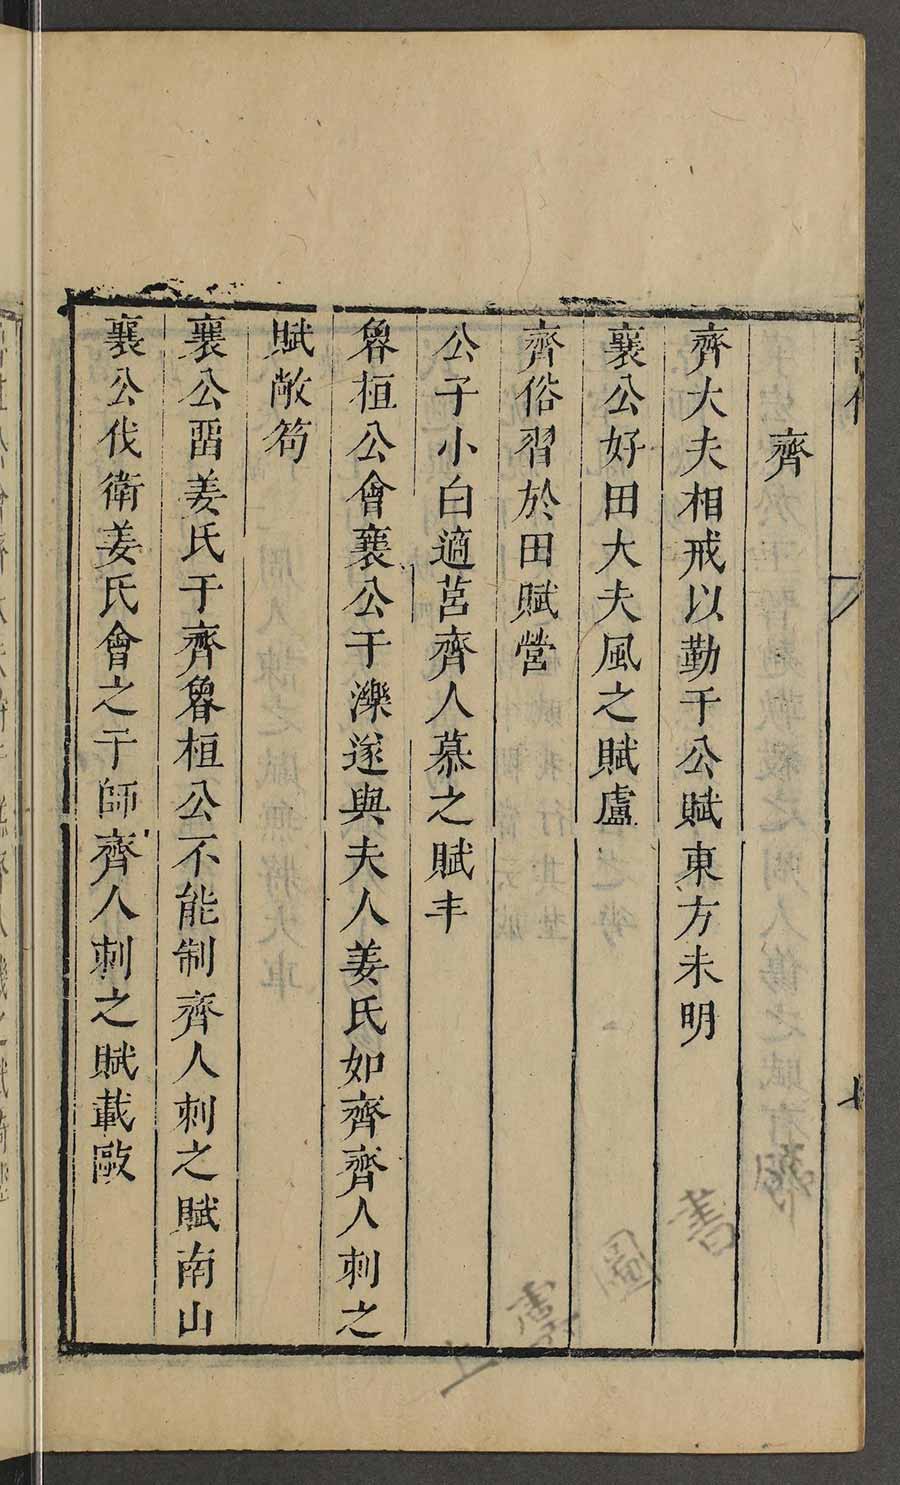 齊
齊大夫相戒以勤于公賦東方未明
襄公好田大夫風之賦盧
齊俗習於田賦營
公子小白適莒齊人慕之賦丰
魯桓公會襄公于濼遂與夫人姜氏如齊齊人刺之
賦敝笱
襄公畱姜氏于齊魯桓公不能制齊人刺之賦南山
襄公伐衛姜氏會之于師齊人刺之賦載敺